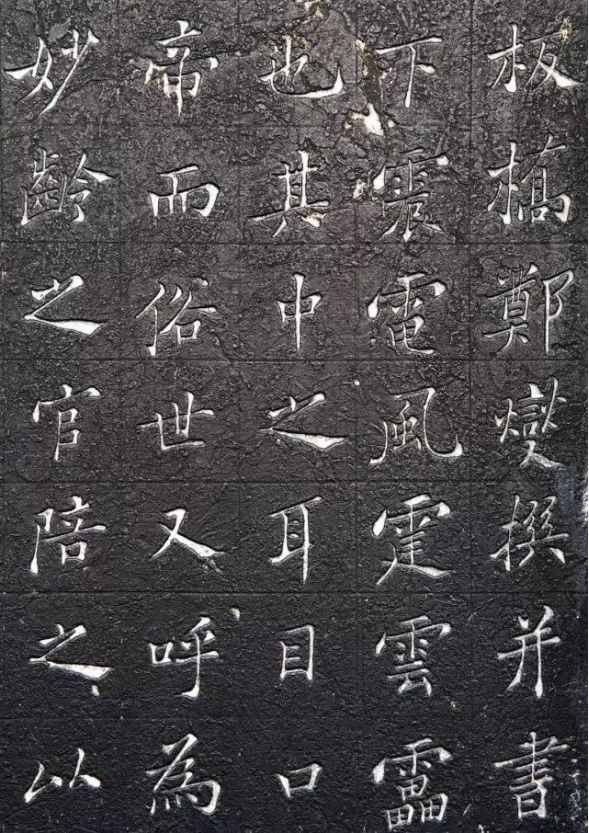 板橋鄭燮撰并書
下震電風霆雲靁
也其中之耳目口
帝而俗世又呼為
妙齡之官陪之以